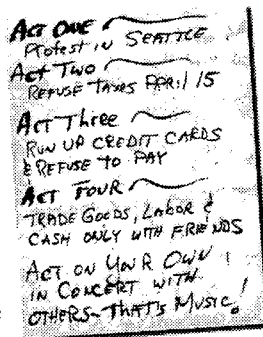 ACT ONE
Protest in SEATTLE
Act Two
REFUSE TAXES APRIL 15
ACT Three
RUN UP CREDIT CARDS
& REFUSE TO PAY
ACT FOUR
TRADE GOODS, LABOR &
CASH ONLY WITH FRIENDS
ACT ON YOUR OWN
IN CONCERT WITH
OTHERS—THAT'S MUSIC!